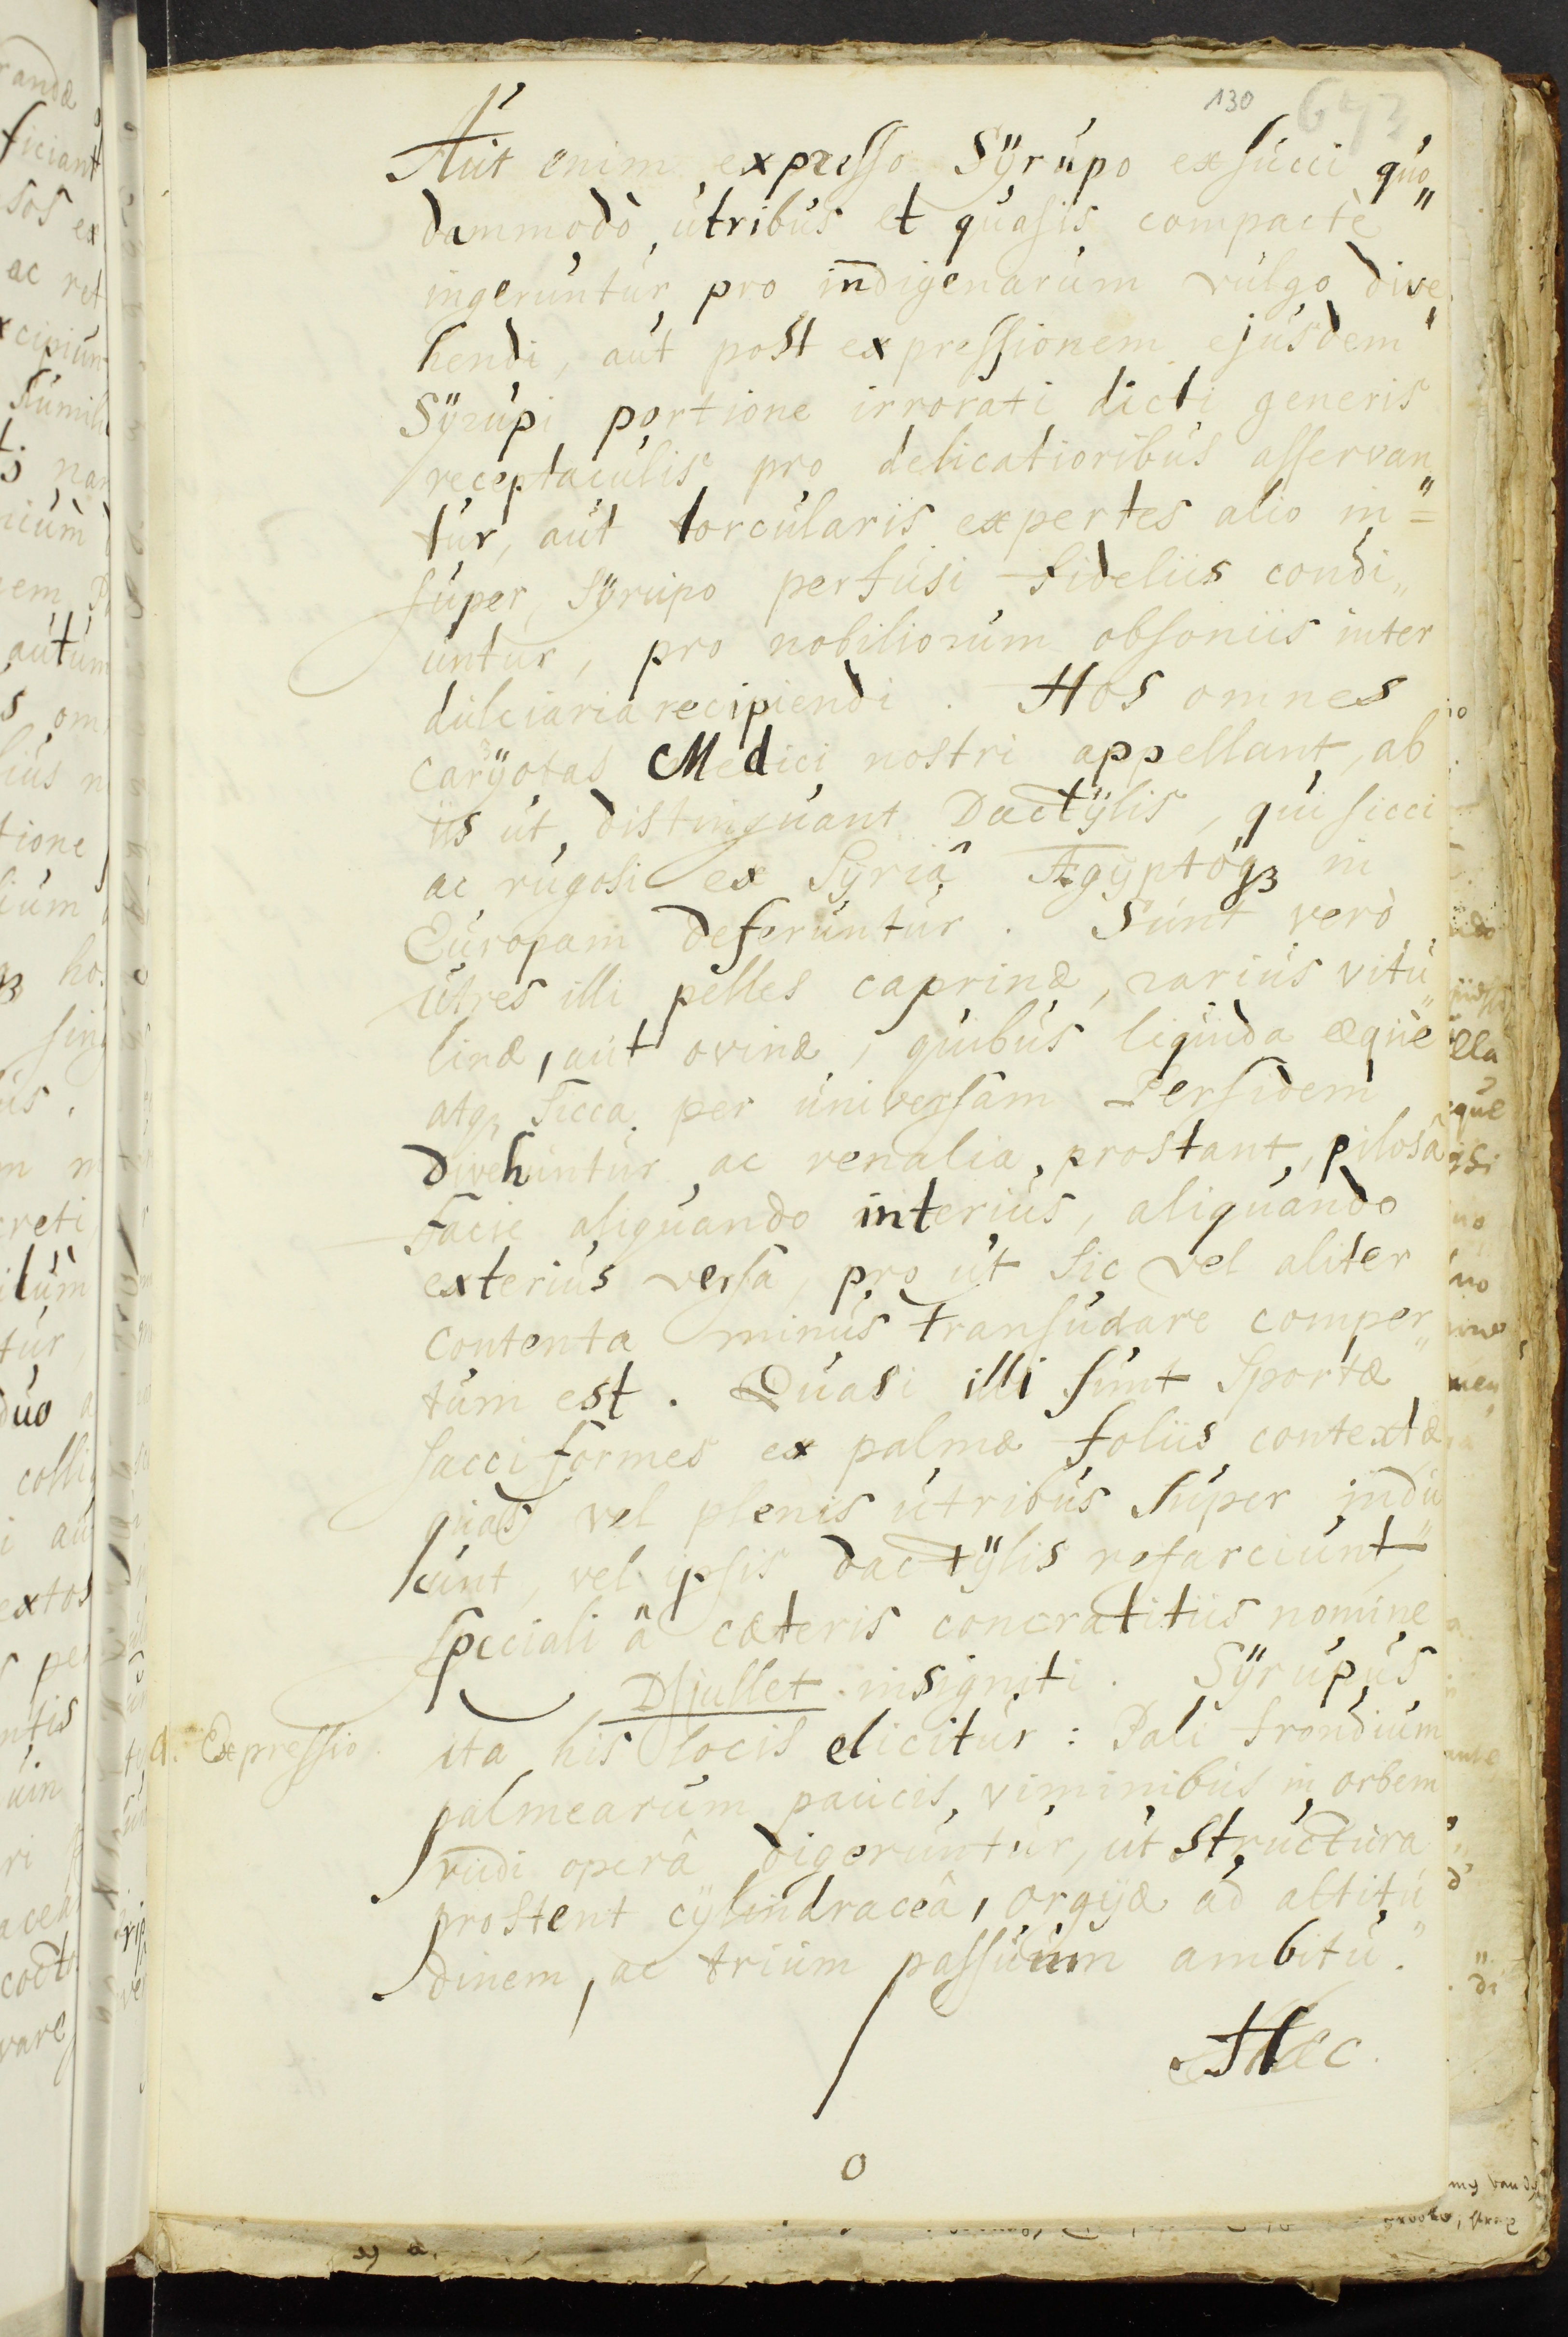 130 643
Aut enim expresso Sÿrupo exsucci quo„
dammodò, utribus et quasis compactè
ingeruntur, pro indigenarum vulgo dive„
hendi, aut post expressionem ejusdem
Sÿrupi portione irrorati dicti generis
receptaculis pro delicatioribus asservan„
tur, aut torcularis expertes alio in=
super, Sÿrupo perfusi fideliis condi„
untur, pro nobiliorum obsoniis inter
dulciaria recipiendi. Hos omnes
carÿotas Medici nostri appellant, ab
iis ut distinguant Dactÿlis, qui sicci
ac rugosi ex Sÿriâ Ægÿptóqꝫ in
Europam deferuntur. Sunt verò
utres illi pelles caprinæ, rarius vitu„
linæ, aut ovinæ, quibus liquida æque
atq, sicca per universam Persidem
divehuntur ac venalia prostant, pilosâ
facie aliquando interius, aliquando
exterius versâ, pro ut sic vel aliter
contenta minus transudare comper„
tum est. Quasi illi sunt Sportæ
sacciformes ex palmæ foliis contextæ
quas vel plenis utribus super indu„
cunt, vel ipsis dactÿlis refarciunt,
speciali â cæteris concratitiis nomine
Dsjullet insigniti. Sÿrupus
d. Expressio. ita his locis elicitur: Pali frondium
palmearum paucis, viminibus in orbem
rudi operâ digeruntur, ut structura
prostent cÿlindraceâ, orgÿæ ad altitu„
dinem, ac trium passuum ambitu.
Hæc.
0